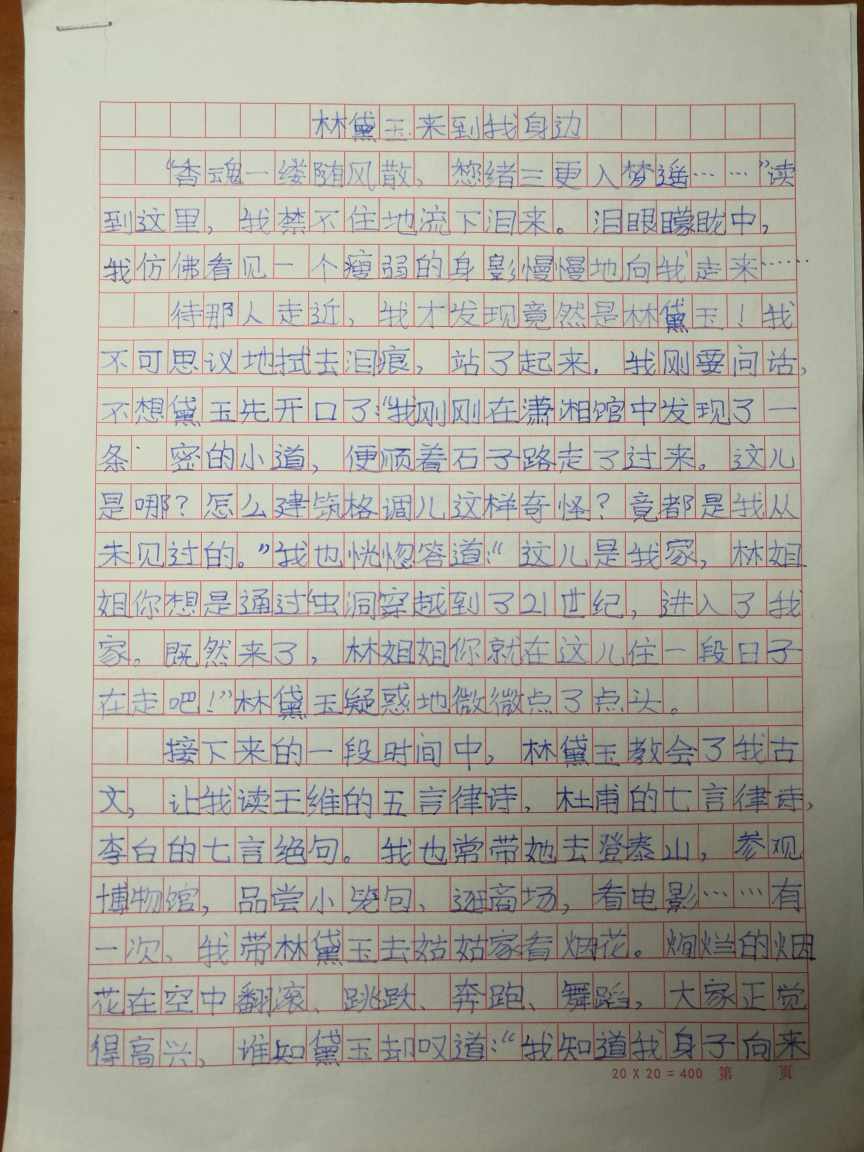 林黛玉来到我身边
“香魂一缕随风散,愁绪三更入梦遥……”读
到这里,我禁不住地流下泪来。泪眼朦胧中,
我仿佛看见一个瘦弱的身影慢慢地向我走来……
待那人走近,我才发现竟然是林黛玉!我
不可思议地拭去泪痕,站了起来。我刚要问话,
不想黛玉先开口了:“我刚刚在潇湘馆中发现了一
条 密的小道,便顺着石子路走了过来。这儿
是哪?怎么建筑格调儿这样奇怪?竟都是我从
未见过的。”我也恍惚答道:“这儿是我家,林姐
姐你想是通过虫洞穿越到了21世纪,进入了我
家。既然来了,林姐姐你就在这儿住一段日子
在走吧!”林黛玉疑惑地微微点了点头。
接下来的一段时间中,林黛玉教会了我古
文,让我读王维的五言律诗,杜甫的七言律诗,
李白的七言绝句。我也常带她去登泰山,参观
博物馆,品尝小笼包、逛商场,看电影……有
一次、我带林黛玉去姑姑家看烟花。绚烂的烟
花在空中翻滚、跳跃、奔跑、舞蹈,大家正觉
得高兴,谁知黛玉却叹道:“我知道我身子向来
20 X 20 = 400 第 页